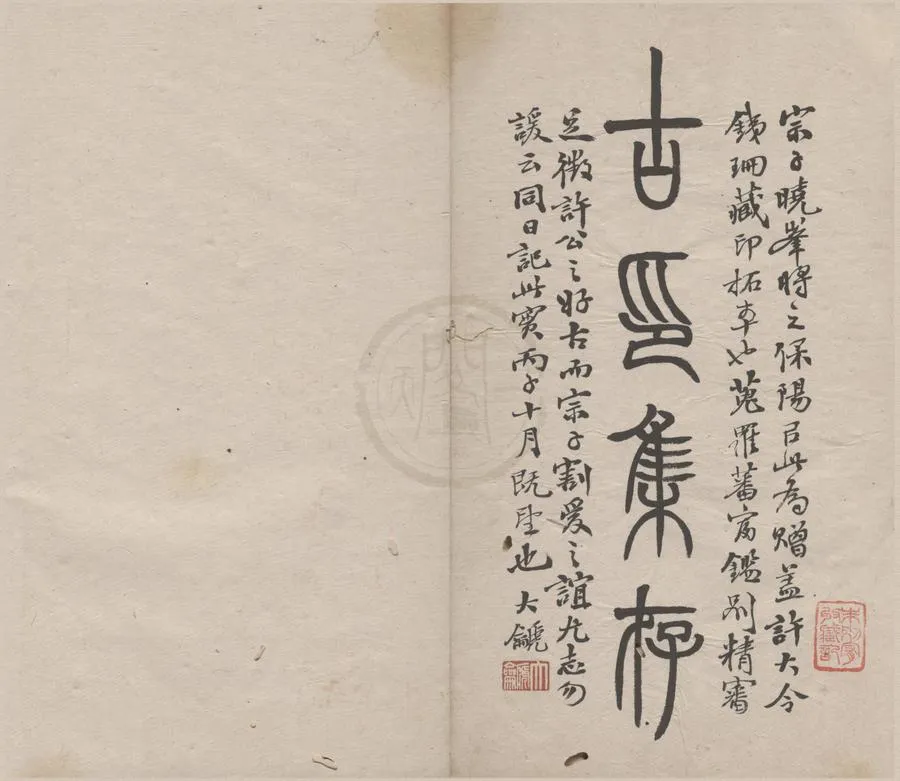 宗子曉峯將之保陽㠯此為贈蓋許大令
鐵珊藏印拓本也蒐羅蕃富鑑別精審
古印集存
足徵許公之好古而宗子割愛之誼尤志勿
諼云同日記此實丙子十月既望也 大龢